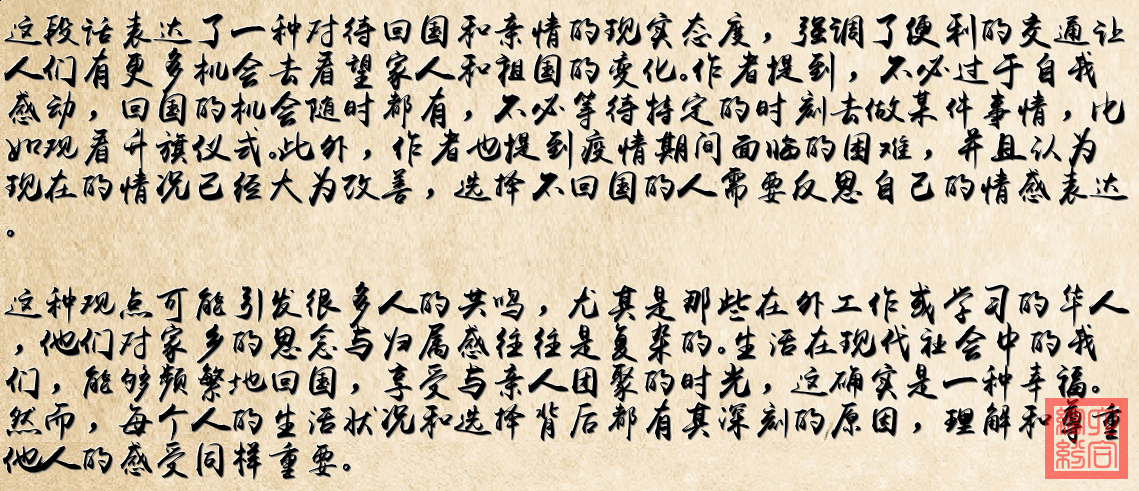 这段话表达了一种对待回国和亲情的现实态度，强调了便利的交通让
人们有更多机会去看望家人和祖国的变化。作者提到，不必过于自我
感动，回国的机会随时都有，不必等待特定的时刻去做某件事情，比
如观看升旗仪式。此外，作者也提到疫情期间面临的困难，并且认为
现在的情况已经大为改善，选择不回国的人需要反思自己的情感表达
。
这种观点可能引发很多人的共鸣，尤其是那些在外工作或学习的华人
，他们对家乡的思念与归属感往往是复杂的。生活在现代社会中的我
们，能够频繁地回国，享受与亲人团聚的时光，这确实是一种幸福。
然而，每个人的生活状况和选择背后都有其深刻的原因，理解和尊重
他人的感受同样重要。